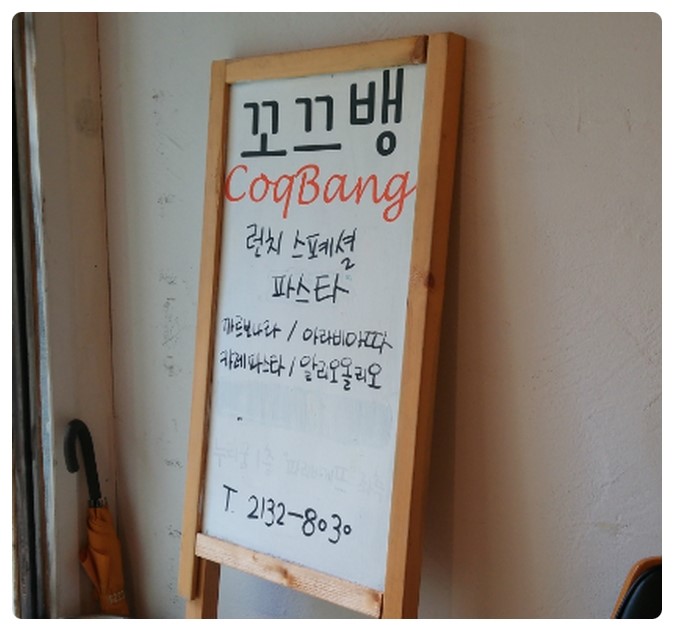 꼬끄뱅
CoqBang
런치 스페셜
파스타
까르보나라 / 아라비아따
카레파스타 / 알리오올리오
T. 2132-8030